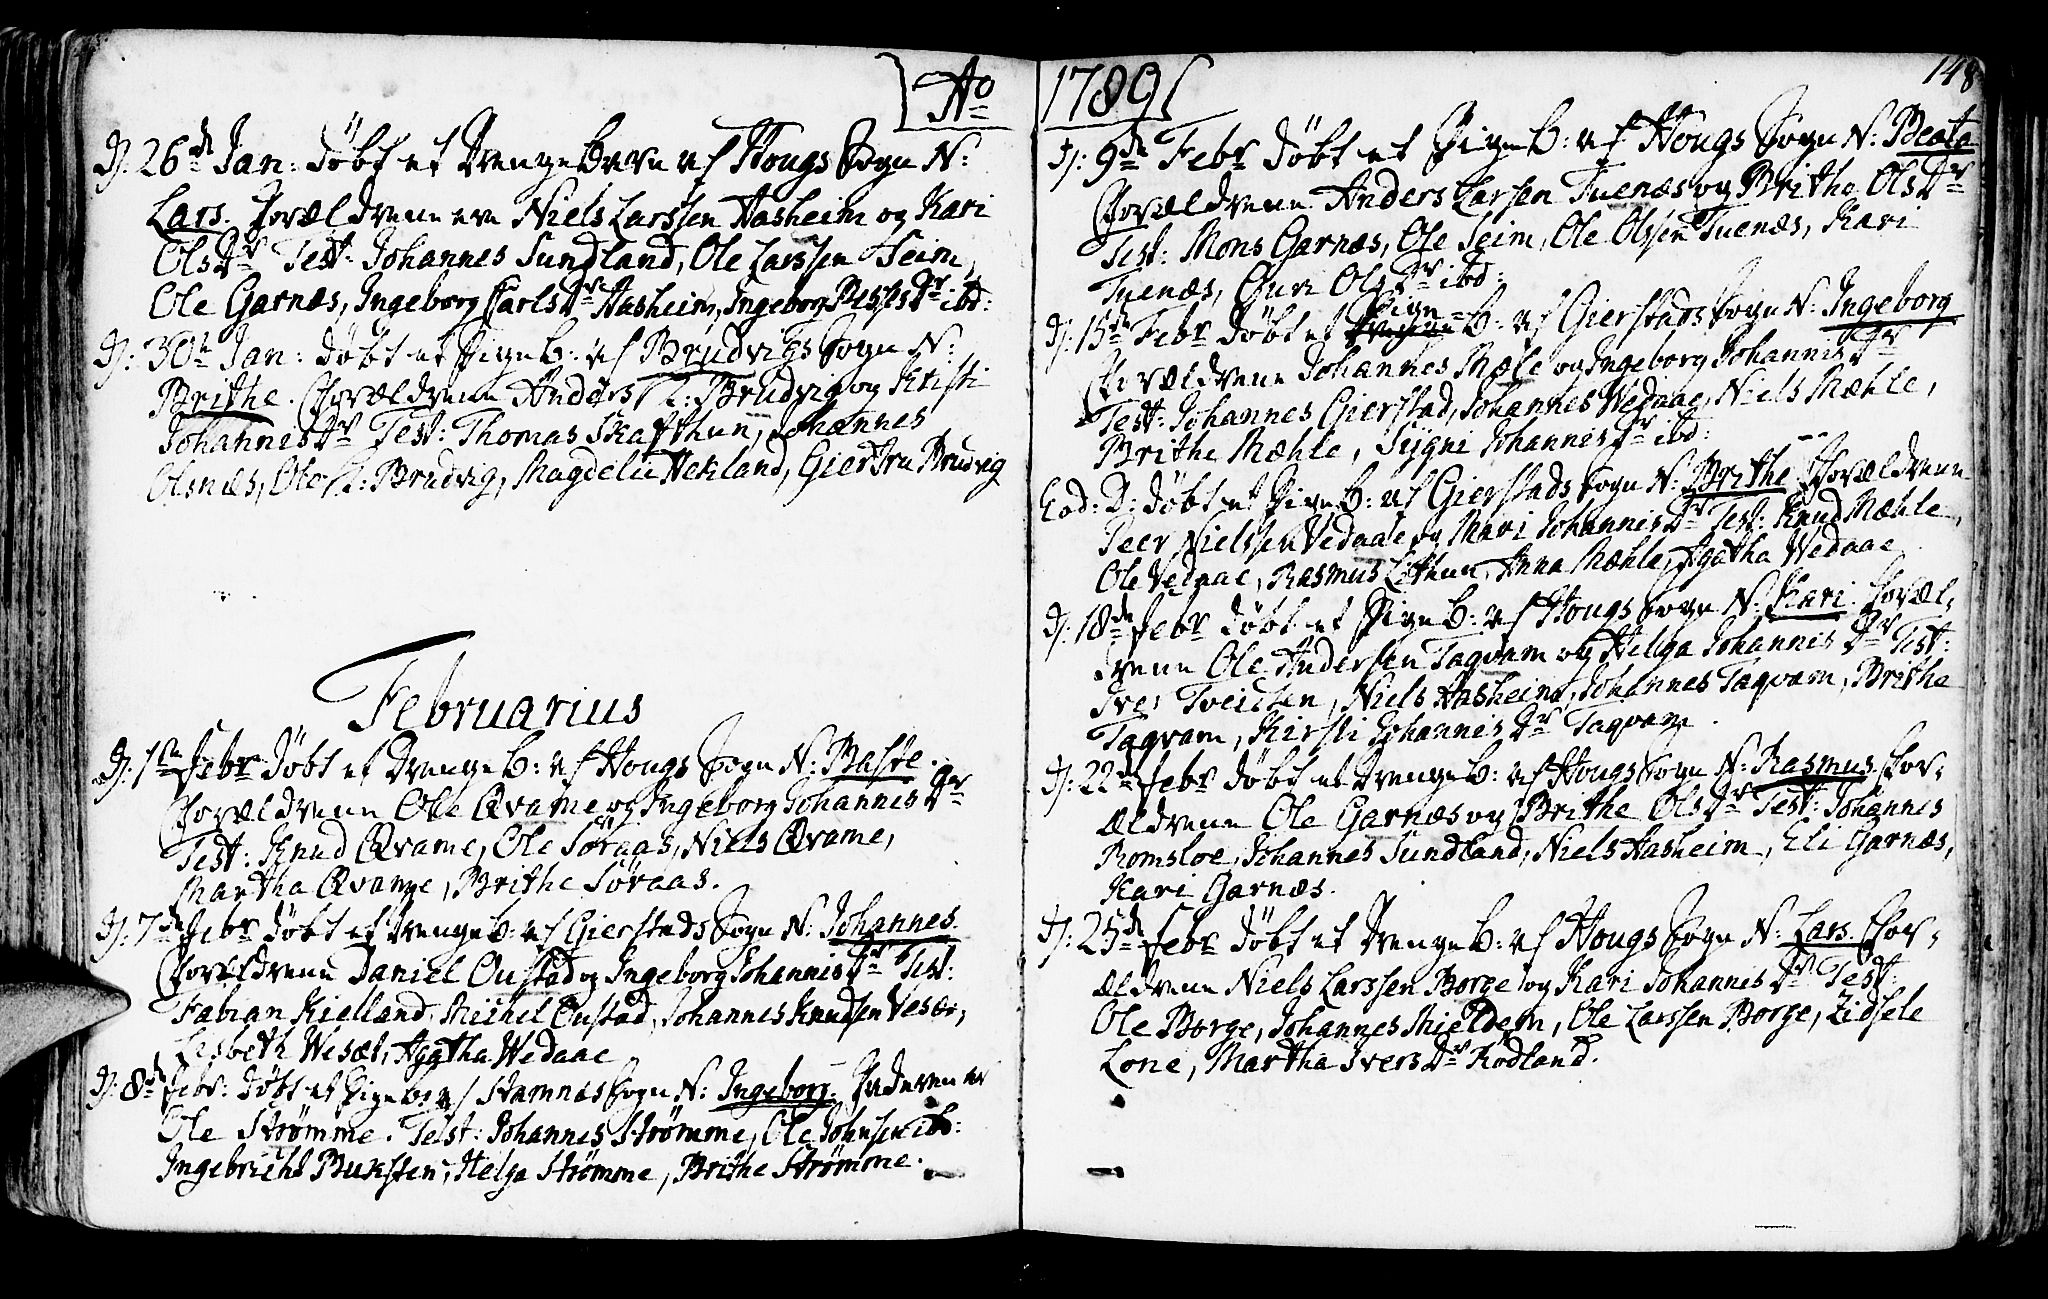 Ao 1789
148
D: 26de Jan: døbt et Drenge Barn af Hougs Sogn N:
Lars. Forældrene ere Niels Larssen Aasheim og Kari
OlsDr Test: Johannes Sundland, Ole Larssen Seim,
Ole Garnæs, Ingeborg CarlsDr Aasheim, Ingeborg Dr ibd:
D: 30te Jan: døbt et Pige B: af Brudvigs Sogn N:
Brithe. Forældrene Anders L: Brudvig og Kristi
JohannisDr Test: Thomas Skafthun, Johannes
Olsnæs, Ole L: Brudvig, Magdeli Hekland, Giertru Brudvig
Februarius
D: 1ste Febr døbt et Drenge B: af Hougs Sogn N: Baste.
Forældrene Ole Qvame og Ingeborg JohannesDr
Test: Knud Qvame, Ole Søraas, Niels Qvame,
Martha Qvame, Brithe Søraas.
D: 7de Febr døbt et Drenge B: af Gierstads Sogn N: Johannes.
Forældrene Daniel Oustad og Ingeborg JohannisDr Test:
Fabian Kielland, Michel Oustad, Johannes Knudsen Vesæt,
Lisbeth Wesæt, Agatha Wedaae
D: 8de Febr: døbt et Pige B: af Stamnæs Sogn N: Ingeborg. Faderen er
Ole Strømme. Test: Johannes Strømme, Ole Johnsen ib:
Ingebricht Buksten, Helga Strømme, Brithe Strømme.
D: 9de Febr døbt et Pige B: af Hougs Sogn N: Beata
Forældrene Anders Larsen Tuenæs og Britha OlsDr
Test: Mons Garnæs, Ole Seim, Ole Olssen Tuenæs, Kari
Tuenæs, Guri OlsDr ibd:
D: 15de Febr døbt et Pige B: af Gierstads Sogn N: Ingeborg
Forældrene Johannes Mæle og Ingeborg JohannisDr
Test: Johannes Gierstad, Johannes Wedaae, Niels Mæhle,
Brithe Mæhle, Sygni JohannisDr ibd:
Eod: D: døbt et Pige B: af Gierstads Sogn N: Brithe Forældrene
Peer Nielssen Vedaae og Mari JohannisDr Test: Knud Mæhle,
Ole Vedaae, Rasmus Lithun, Anna Mæhle, Agatha Wedaae
D: 18de Febr døbt et Pige B: af Hougs Sogn N: Kari. Foræl-
drene Ole Andersen Tagvam og Helga JohannisDr Test:
Iver Tveiten, Niels Aasheim, Johannes Tagvam, Brithe
Tagvam, Kirsti JohannisDr Tagvam.
D: 22de Febr døbt et Drenge B: af Hougs Sogn N: Rasmus. For-
ældrene Ole Garnæs og Brithe OlsDr Test: Johannes
Romsloe, Johannes Sundland, Niels Aasheim, Eli Garnæs,
Kari Garnæs.
D: 25de Febr døbt et Drenge B: af Hougs Sogn N: Lars. For-
ældrene Niels Larssen Borge og Kari JohannisDr Test:
Ole Borge, Johannes Mieldem, Ole Larssen Borge, Zidsele
Lone, Martha IversDr Rødland.